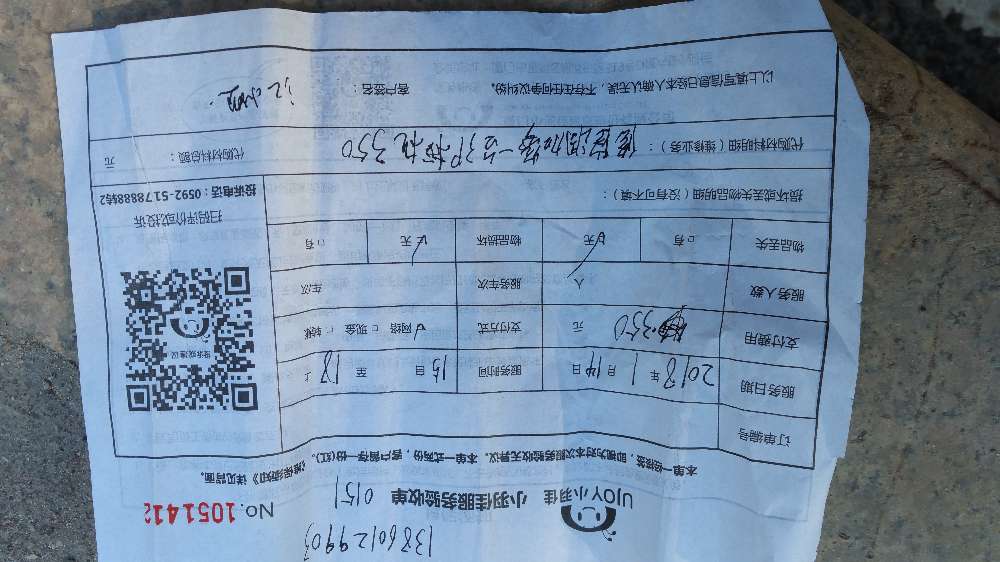 13860129903
UJOY小羽佳 小羽佳服务验收单 0151 NO.1051412
本单一经接签，即视为对本次服务验收无异议。本单一式两份，客户留存一份（红）。《维保须知》详见背面。
订单编号
服务日期 2018年1月14日 服务时间 15日至18上
支付费用 350元 支付方式 网络 现金 转账
服务人数 人 服务车次 车次
物品丢失 有 无 物品损坏 有 无
损坏或丢失物品明细（没有可不填）：
代购材料明细（维修业务）： 350 代购材料总额： 元
以上填写信息已经本人确认无误，不存在任何争议纠纷。 客户签名：
投诉或建议
扫码评价或投诉
投诉电话：0592-5178888转2